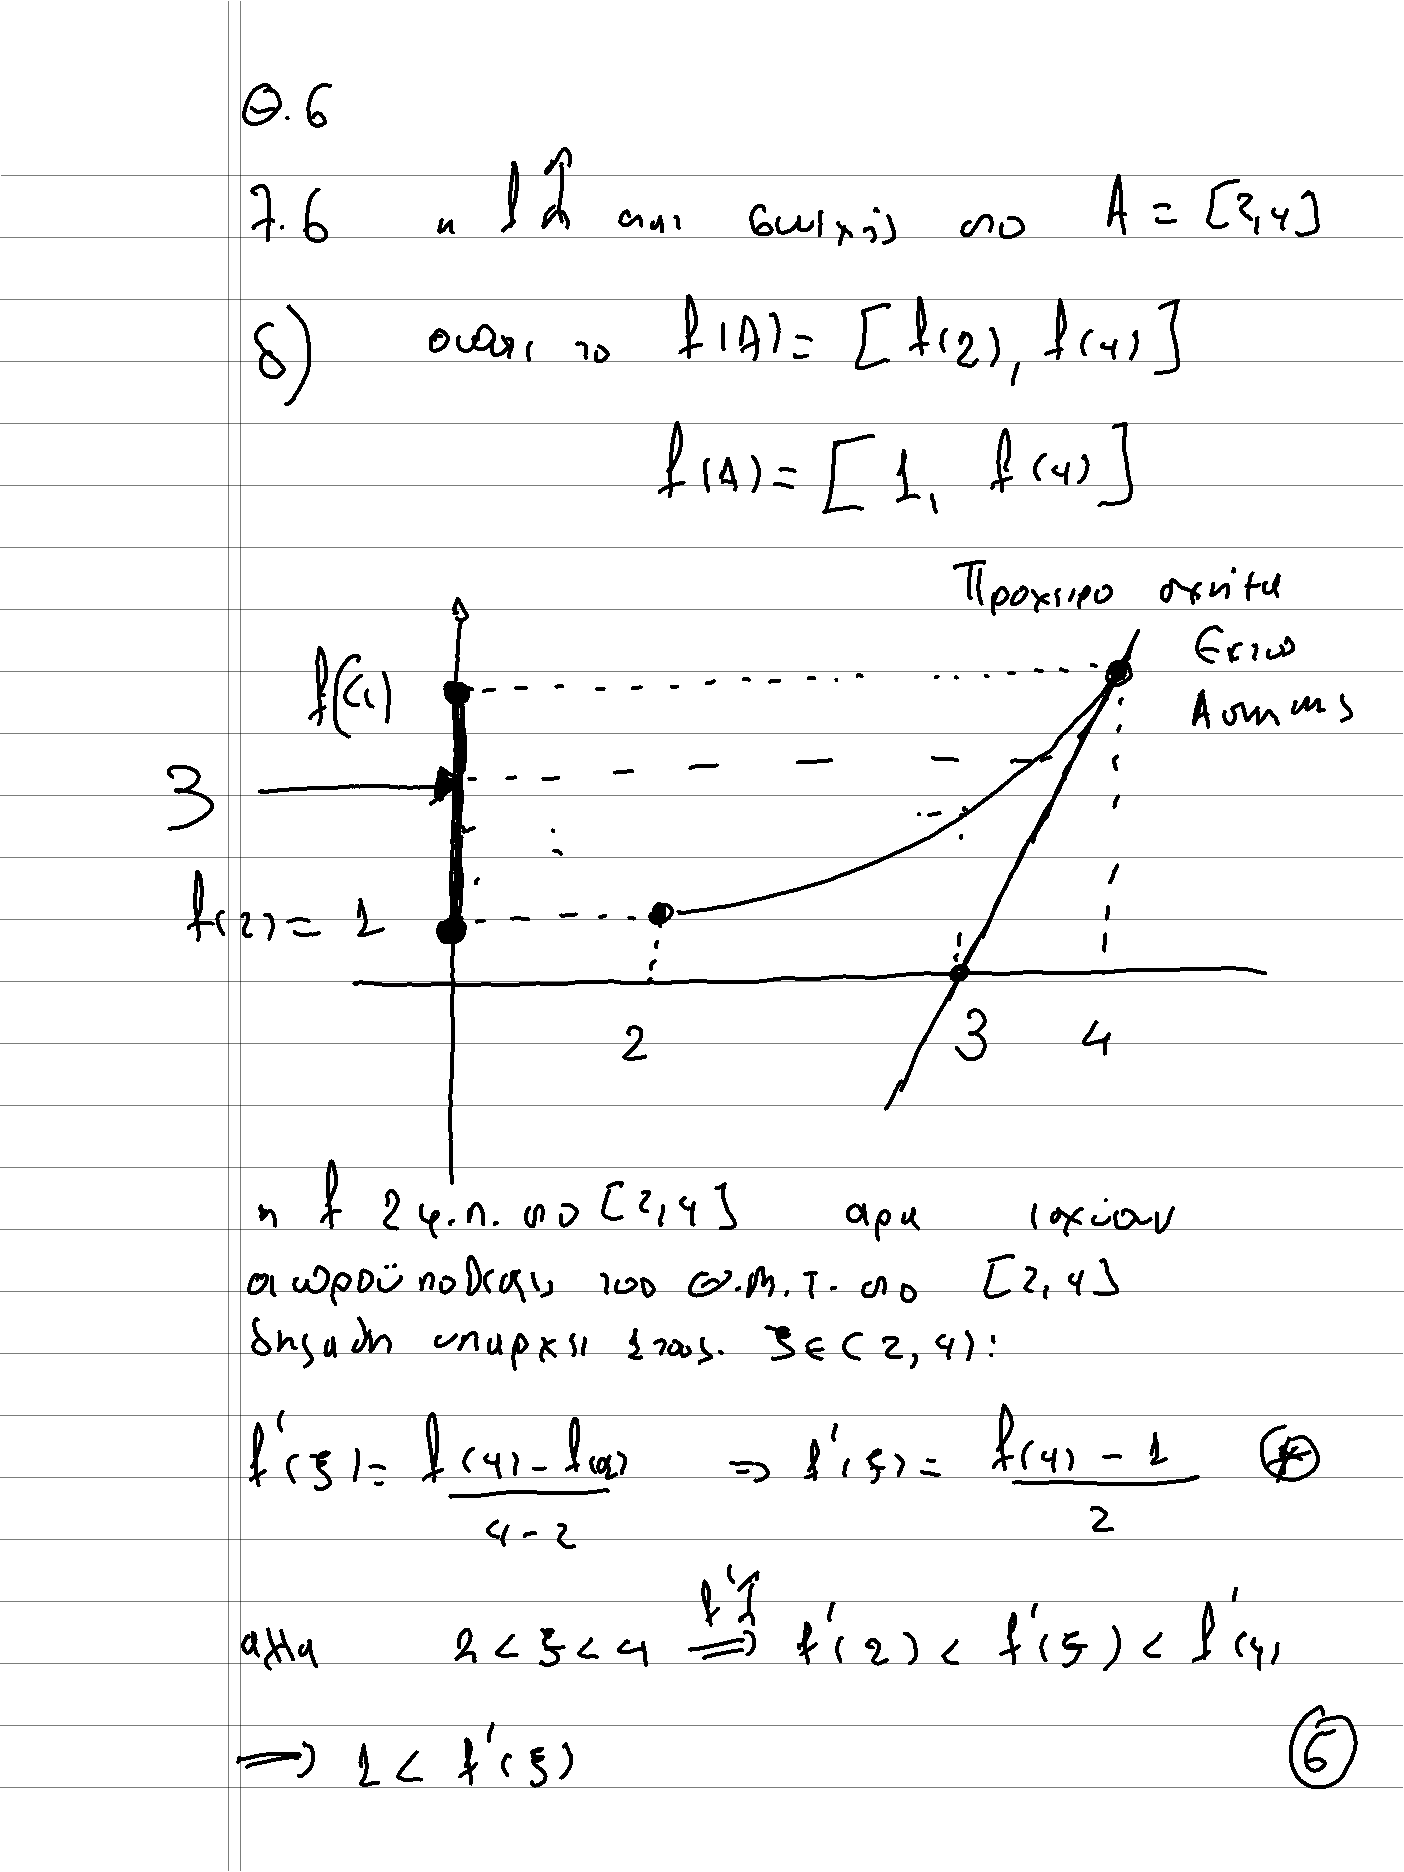 Θ.6
7.6 η f ↑ και συνεχής στο A = [2,4]
δ) οπότε το f(A) = [f(2), f(4)]
f(A) = [1, f(4)]
Προχειρο σχημα
Εκτος
f(4)
3
f(2) = 1
2 3 4
η f 2 φ.π. στο [2,4] αρα ισχύουν
οι προϋποθεσεις του Θ.Μ.Τ. στο [2,4]
δηλαδη υπαρχει 1 τουλ. ξ ∈ (2,4):
f'(ξ) = f(4) - f(2) / 4 - 2 ⇒ f'(ξ) = f(4) - 1 / 2 (*)
αλλα 2 < ξ < 4 f'↑ ⇒ f'(2) < f'(ξ) < f'(4)
⇒ 1 < f'(ξ)
6